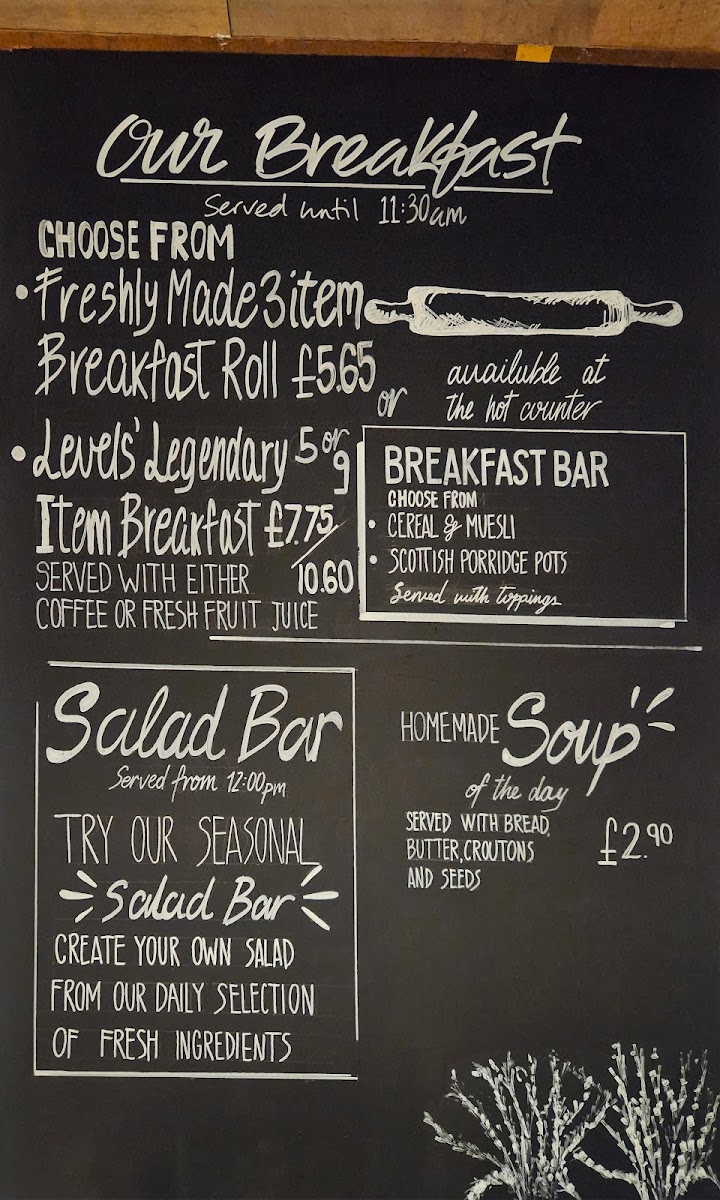 Our Breakfast
Served until 11:30am
CHOOSE FROM
• Freshly Made 3 item
Breakfast Roll £5.65
or
available at
the hot counter
• Levels' Legendary 5 or 9
Item Breakfast £7.75/10.60
SERVED WITH EITHER
COFFEE OR FRESH FRUIT JUICE
BREAKFAST BAR
CHOOSE FROM
• CEREAL & MUESLI
• SCOTTISH PORRIDGE POTS
Served with toppings
Salad Bar
Served from 12:00pm
TRY OUR SEASONAL
Salad Bar
CREATE YOUR OWN SALAD
FROM OUR DAILY SELECTION
OF FRESH INGREDIENTS
HOMEMADE Soup
of the day
SERVED WITH BREAD, £2.90
BUTTER, CROUTONS
AND SEEDS